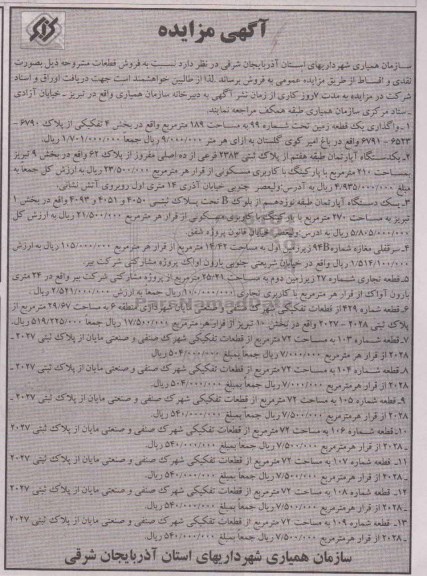 آگهی مزایده
سازمان همیاری شهرداریهای استان آذربایجان شرقی در نظر دارد نسبت به فروش قطعات مشروحه ذیل بصورت
نقدی و اقساط از طریق مزایده عمومی به فروش برساند. لذا از طالبین خواهشمند است جهت دریافت اوراق و اسناد
شرکت در مزایده به مدت ۷روز کاری از زمان نشر آگهی به دبیرخانه سازمان همیاری واقع در تبریز ـ خیابان آزادی
ـ ستاد مرکزی سازمان همیاری طبقه همکف مراجعه نمایند.
۱ـ واگذاری یک قطعه زمین تحت شماره ۹۹ به مساحت ۱۸۹ مترمربع واقع در بخش ۴ تفکیکی از پلاک ۶۷۹۰ ـ
۶۵۲۳ ـ ۶۷۹۱ واقع در باغ امیر کوی گلستان به ازای هر متر ۹/۰۰۰/۰۰۰ ریال جمعاً ۱/۷۰۱/۰۰۰/۰۰۰ ریال.
۲ـ یکدستگاه آپارتمان طبقه هفتم از پلاک ثبتی ۲۳۸۲ فرعی از ده اصلی مفروز از پلاک ۶۲ واقع در بخش ۹ تبریز
بمساحت ۲۱۰ مترمربع با پارکینگ با کاربری مسکونی از قرار هر مترمربع ۲۳/۵۰۰/۰۰۰ ریال به ارزش کل جمعاً به
مبلغ ۴/۹۳۵/۰۰۰/۰۰۰ ریال به آدرس:ولیعصر جنوبی خیابان آذری ۱۴ متری اول روبروی آتش نشانی.
۳ـ یک دستگاه آپارتمان طبقه نوزدهم از بلوک B تحت پلاک ثبتی ۴۰۵۰ و ۴۰۵۱ و ۴۰۹۳ واقع در بخش ۱
تبریز به مساحت ۲۷۰ مترمربع با پارکینگ با کاربری مسکونی از قرار هر مترمربع ۲۱/۵۰۰/۰۰۰ ریال به ارزش کل
۵/۸۰۵/۰۰۰/۰۰۰ ریال به آدرس:ولیعصر خیابان قانون پروژه شفق.
۴ـ سرقفلی مغازه شماره ۹۴B زیرزمین اول به مساحت ۱۴/۴۲ مترمربع از قرار هر مترمربع ۱۰۵/۰۰۰/۰۰۰ ریال به ارزش
۱/۵۱۴/۱۰۰/۰۰۰ ریال واقع در خیابان شریعتی جنوبی بارون آواک پروژه مشارکتی شرکت بیر.
۵ـ قطعه تجاری شماره ۲۷ زیرزمین دوم به مساحت ۲۵/۲۱ مترمربع از پروژه مشارکتی شرکت بیر واقع در ۲۴ متری
بارون آواک از قرار هر مترمربع با کاربری تجاری جمعاً به ارزش ۲/۵۴۱/۰۰۰/۰۰۰ ریال.
۶ـ قطعه شماره ۴۲۹ از قطعات تفکیکی شهرک صنفی و صنعتی پایان شهرداری منطقه ۶ به مساحت ۲۹/۶۷ مترمربع از
پلاک ثبتی ۲۰۲۸ ـ ۲۰۲۷ واقع در بخش ۱۰ تبریز از قرار هر مترمربع ۱۷/۵۰۰/۰۰۰ ریال جمعاً ۵۱۹/۲۲۵/۰۰۰ ریال.
۷ـ قطعه شماره ۱۰۳ به مساحت ۷۲ مترمربع از قطعات تفکیکی شهرک صنفی و صنعتی مایان از پلاک ثبتی ۲۰۲۷
ـ ۲۰۲۸ از قرار هر مترمربع ۷/۰۰۰/۰۰۰ ریال جمعاً بمبلغ ۵۰۴/۰۰۰/۰۰۰ ریال.
۸ـ قطعه شماره ۱۰۴ به مساحت ۷۲ مترمربع از قطعات تفکیکی شهرک صنفی و صنعتی مایان از پلاک ثبتی ۲۰۲۷
ـ ۲۰۲۸ از قرار هر مترمربع ۷/۰۰۰/۰۰۰ ریال جمعاً بمبلغ ۵۰۴/۰۰۰/۰۰۰ ریال.
۹ـ قطعه شماره ۱۰۵ به مساحت ۷۲ مترمربع از قطعات تفکیکی شهرک صنفی و صنعتی مایان از پلاک ثبتی ۲۰۲۷
ـ ۲۰۲۸ از قرار هر مترمربع ۷/۵۰۰/۰۰۰ ریال جمعاً بمبلغ ۵۴۰/۰۰۰/۰۰۰ ریال.
۱۰ـ قطعه شماره ۱۰۶ به مساحت ۷۲ مترمربع از قطعات تفکیکی شهرک صنفی و صنعتی مایان از پلاک ثبتی ۲۰۲۷
ـ ۲۰۲۸ از قرار هر مترمربع ۷/۵۰۰/۰۰۰ ریال جمعاً بمبلغ ۵۴۰/۰۰۰/۰۰۰ ریال.
۱۱ـ قطعه شماره ۱۰۷ به مساحت ۷۲ مترمربع از قطعات تفکیکی شهرک صنفی و صنعتی مایان از پلاک ثبتی ۲۰۲۷
ـ ۲۰۲۸ از قرار هر مترمربع ۷/۵۰۰/۰۰۰ ریال جمعاً بمبلغ ۵۴۰/۰۰۰/۰۰۰ ریال.
۱۲ـ قطعه شماره ۱۰۸ به مساحت ۷۲ مترمربع از قطعات تفکیکی شهرک صنفی و صنعتی مایان از پلاک ثبتی ۲۰۲۷
ـ ۲۰۲۸ از قرار هر مترمربع ۷/۵۰۰/۰۰۰ ریال جمعاً بمبلغ ۵۴۰/۰۰۰/۰۰۰ ریال.
۱۳ـ قطعه شماره ۱۰۹ به مساحت ۷۲ مترمربع از قطعات تفکیکی شهرک صنفی و صنعتی مایان از پلاک ثبتی ۲۰۲۷
ـ ۲۰۲۸ از قرار هر مترمربع ۷/۵۰۰/۰۰۰ ریال جمعاً بمبلغ ۵۴۰/۰۰۰/۰۰۰ ریال.
سازمان همیاری شهرداریهای استان آذربایجان شرقی